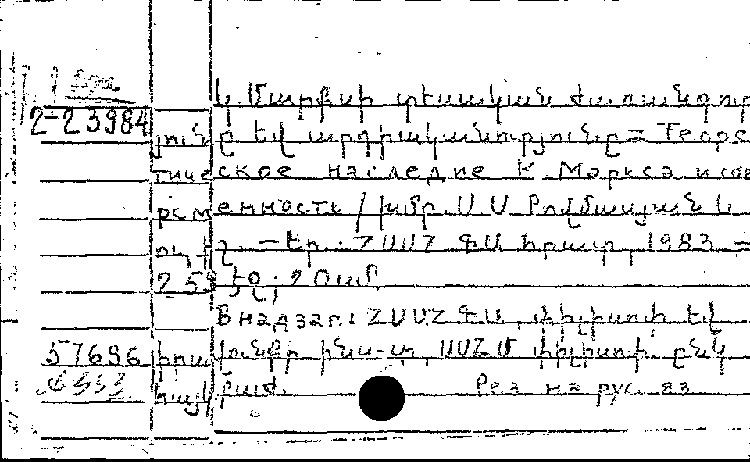 Կ. Մարքսի տեսական ժառանգոր
2-23984
յունը եվ արդիականությունը = Теоре
тическое наследие К. Маркса и сов
ременность / խմբ. Ս. Ս. Թովմասյան և
ուր. — Եր.: ՀՍՍՀ ԳԱ հրատ., 1983. —
259 էջ; 20 սմ.
В надзаг.: ՀՍՍՀ ԳԱ, փիլիսոփ. եվ
57696 իրավունքի ինս-տ, ՍՍՀՄ փիլիսոփ. ընկ
հայկ. բաժ. Рез. на рус. яз.